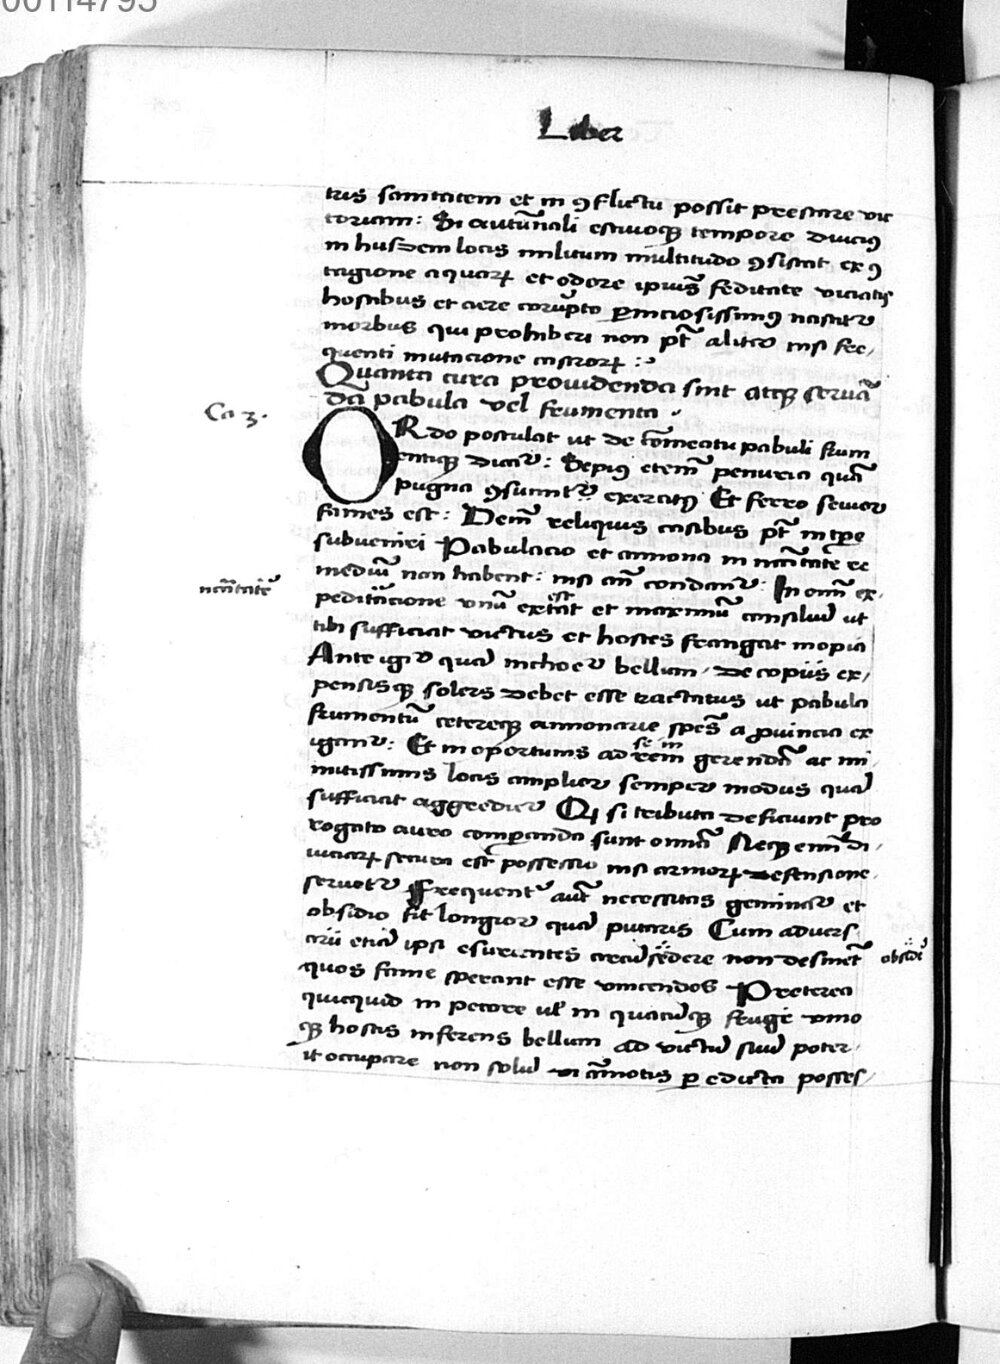 00114795
Liber
tris sanitatem et in ꝯflictu possit prestare vic
toriam: Si autūnali estiuoqꝫ tempore diuciꝰ
in hiisdem locis militum multitudo ꝯsistat ex ꝯ
tagione aquarꝝ et odore ipiuꝰ feditate viciatis
hostibus et aere corūpto ꝑniciosissimꝰ nascitᷣ
morbus qui prohiberi non pt̄ aliter nisi fre/
quenti mutacione castrorꝝ :
Quanta cura prouidenda sint atqꝫ seruā
da pabula vel frumenta
Ca 3.
ORdo postulat ut de cōmeatu pabuli frum
entiqꝫ dicatᷣ: Sepiꝰ etem̄ penuria quā
pugna ꝯsumitᷣ exercitꝰ Et ferro seuior
fames est: Dein̄ reliquis casibus pt̄ in tꝑe
subueniri Pabulacio et annona in nc̄itate re
mediū non habent: nisi an̄ condantᷣ: In om̄i ex-
ncc̄itate
peditacione vnū est et maximū consiliū ut
tibi sufficiat victus et hostes frangat inopia
Ante igitᷣ quā inchoetᷣ bellum de copiis ex/
pensisqꝫ solers debet esse tractatus ut pabula
frumentū ceteraqꝫ annonarie spēs a ꝓuincia ex
igantᷣ: Et in oportunis ad rem gerendā ac mu
nitissimis locis amplior semper modus quā
sufficiat aggreditᷣ Qꝫ si tributa deficiunt pro
rogato auro comparanda sunt omnia Neqꝫ enim di/
uiciarꝝ secura est possessio nisi armorꝝ defensione
seruetᷣ Frequentᷣ aut̄ necessitas geminatᷣ et
obsidio fit longior quā putaris Cum aduers
arii etiā ipsi esurientes circūsedere non desināt
obsidē
quos fame sperant esse vincendos Preterea
quicquid in pecore vel in quacūqꝫ fruge vino
qꝫ hostis inferens bellum ad victū suū poter/
it occupare non solū am̄otis per edicta posses/